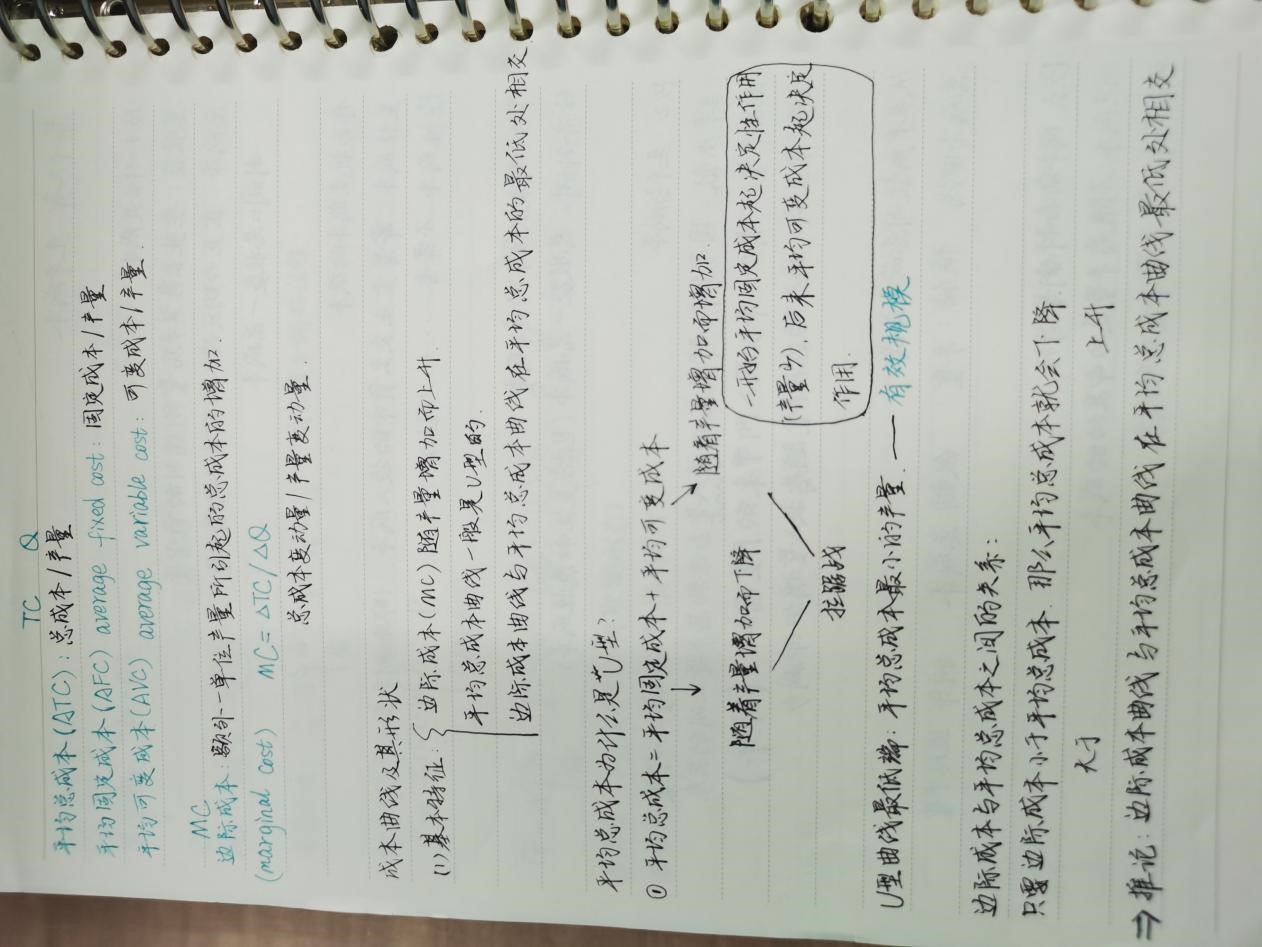 TC Q
平均总成本(ATC)：总成本/产量
平均固定成本(AFC) average fixed cost：固定成本/产量
平均可变成本(AVC) average variable cost：可变成本/产量.
MC
边际成本 额外一单位产量所引起的总成本的增加.
(marginal cost) MC = △TC/△Q
总成本变动量/产量变动量.
成本曲线及其形状
(1)基本特征：{ 边际成本(MC)随产量增加而上升.
平均总成本曲线一般是U型的.
边际成本曲线与平均总成本曲线在平均总成本的最低处相交
平均总成本为什么是U型：
① 平均总成本 = 平均固定成本 + 平均可变成本
↓ ↘
随着产量增加而下降 随着产量增加而增加.
拉锯战
一开始平均固定成本起决定性作用
(产量少)，后来平均可变成本起决定
作用.
U型曲线最低端：平均总成本最小的产量. — 有效规模
边际成本与平均总成本之间的关系：
只要边际成本小于平均总成本. 那么平均总成本就会下降
大于 上升
⇒ 推论：边际成本曲线与平均总成本曲线在平均总成本曲线最低处相交